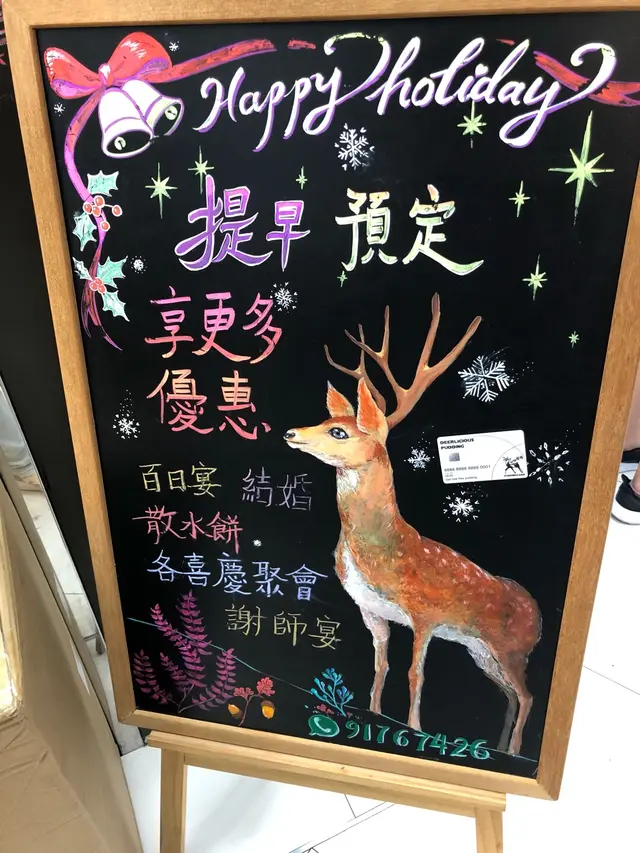 Happy holiday
提早 預定
享更多
優惠
DEERLICIOUS
PUDDING
百日宴 結婚
散水餅
各喜慶聚會
謝師宴
91767426